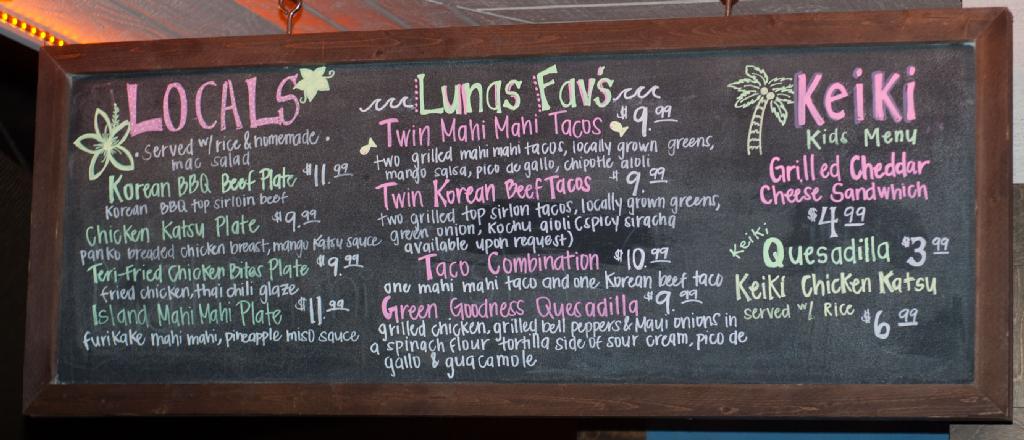 LOCALS
• served w/ rice & homemade •
mac salad
Korean BBQ Beef Plate $11.99
Korean BBQ top sirloin beef
Chicken Katsu Plate $9.99
panko breaded chicken breast, mango katsu sauce
Teri-Fried Chicken Bites Plate $9.99
fried chicken, thai chili glaze
Island Mahi Mahi Plate $11.99
furikake mahi mahi, pineapple miso sauce
Lunas Fav's
Twin Mahi Mahi Tacos $9.99
two grilled mahi mahi tacos, locally grown greens,
mango salsa, pico de gallo, chipotle aioli
Twin Korean Beef Tacos $9.99
two grilled top sirlon tacos, locally grown greens,
green onion, kochu aioli (spicy siracha
available upon request)
Taco Combination $10.99
one mahi mahi taco and one Korean beef taco
Green Goodness Quesadilla $9.99
grilled chicken, grilled bell peppers & Maui onions in
a spinach flour tortilla side of sour cream, pico de
gallo & guacamole
Keiki
Kids Menu
Grilled Cheddar
Cheese Sandwhich
$4.99
Keiki
Quesadilla $3.99
Keiki Chicken Katsu
served w/ Rice $6.99